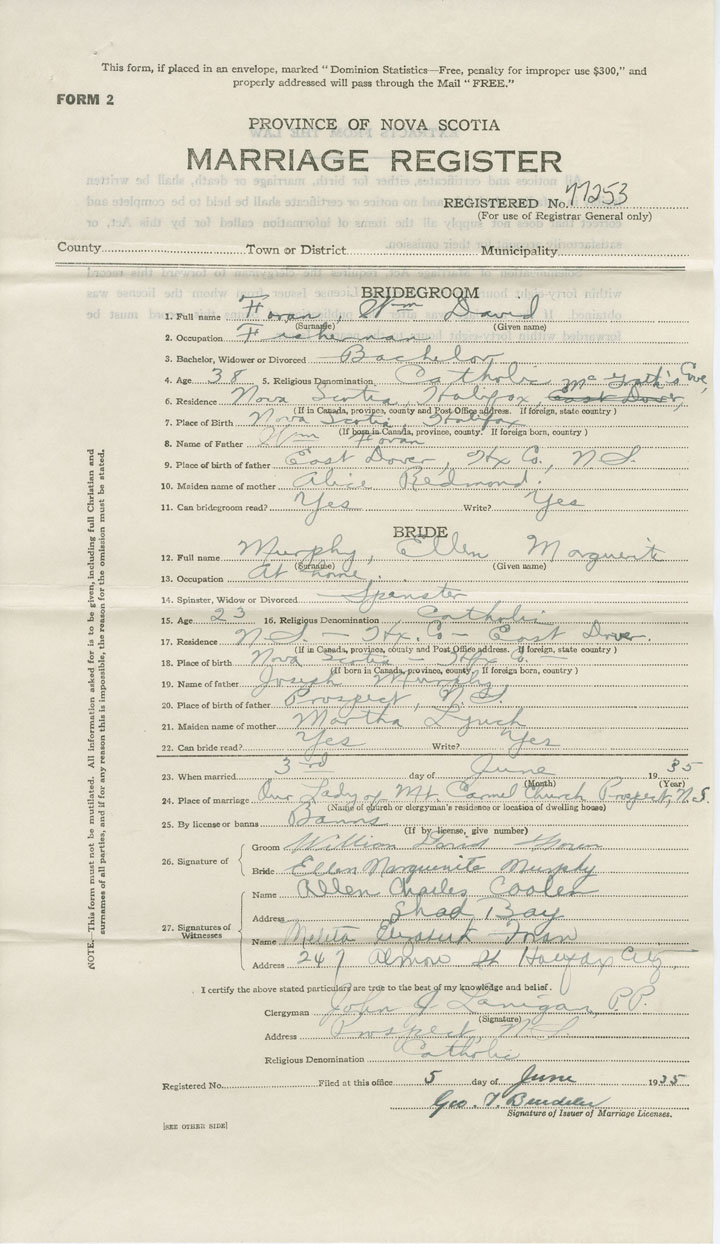 This form, if placed in an envelope, marked "Dominion Statistics—Free, penalty for improper use $300," and
properly addressed will pass through the Mail "FREE."
FORM 2
PROVINCE OF NOVA SCOTIA
MARRIAGE REGISTER
REGISTERED No. 77253
(For use of Registrar General only)
County Town or District Municipality
BRIDEGROOM
1. Full name Foran, Wm David
(Surname) (Given name)
2. Occupation Fisherman
3. Bachelor, Widower or Divorced Bachelor
4. Age 38 5. Religious Denomination Catholic
McGrath's Cove,
6. Residence Nova Scotia, Halifax, East Dover,
(If in Canada, province, county and Post Office address. If foreign, state country)
7. Place of Birth Nova Scotia, Halifax
(If born in Canada, province, county. If foreign born, country)
8. Name of Father Wm Foran
9. Place of birth of father East Dover, Hx Co., N.S.
10. Maiden name of mother Alice Redmond.
11. Can bridegroom read? Yes Write? Yes
BRIDE
12. Full name Murphy, Ellen Marguerite
(Surname) (Given name)
13. Occupation At home.
14. Spinster, Widow or Divorced Spinster
15. Age 23 16. Religious Denomination Catholic
17. Residence N.S. - Hx. Co - East Dover.
(If in Canada, province, county and Post Office address. If foreign, state country)
18. Place of birth Nova Scotia - Hfx Co. -
(If born in Canada, province, county. If foreign born, country)
19. Name of father Joseph Murphy
20. Place of birth of father Prospect, N.S.
21. Maiden name of mother Martha Lynch
22. Can bride read? Yes Write? Yes
23. When married 3rd day of June 1935
(Month) (Year)
24. Place of marriage Our Lady of Mt. Carmel Church Prospect, N.S.
(Name of church or clergyman's residence or location of dwelling house)
25. By license or banns Banns
(If by license, give number)
26. Signature of
Groom William David Foran
Bride Ellen Marguerite Murphy
27. Signatures of Witnesses
Name Allen Charles Coolen
Address Shad Bay
Name Melita Elizabeth Foran
Address 247 Almon St Halifax City
I certify the above stated particulars are true to the best of my knowledge and belief.
Clergyman John J Lanigan, P.P.
(Signature)
Address Prospect, N.S.
Religious Denomination Catholic
Registered No. Filed at this office 5 day of June 1935
Geo. T.
Signature of Issuer of Marriage Licenses.
[SEE OTHER SIDE]
NOTE.—This form must not be mutilated. All information asked for is to be given, including full Christian and
surnames of all parties, and if for any reason this is impossible, the reason for the omission must be stated.